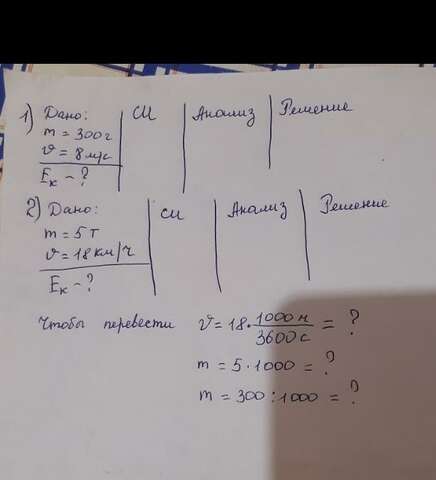 1) Дано: СИ Анализ Решение
m = 300г
υ = 8 м/с
Eк - ?
2) Дано: СИ Анализ Решение
m = 5 т
υ = 18 км/ч
Eк - ?
Чтобы перевести υ = 18 · 1000 м / 3600 с = ?
m = 5 · 1000 = ?
m = 300 : 1000 = ?